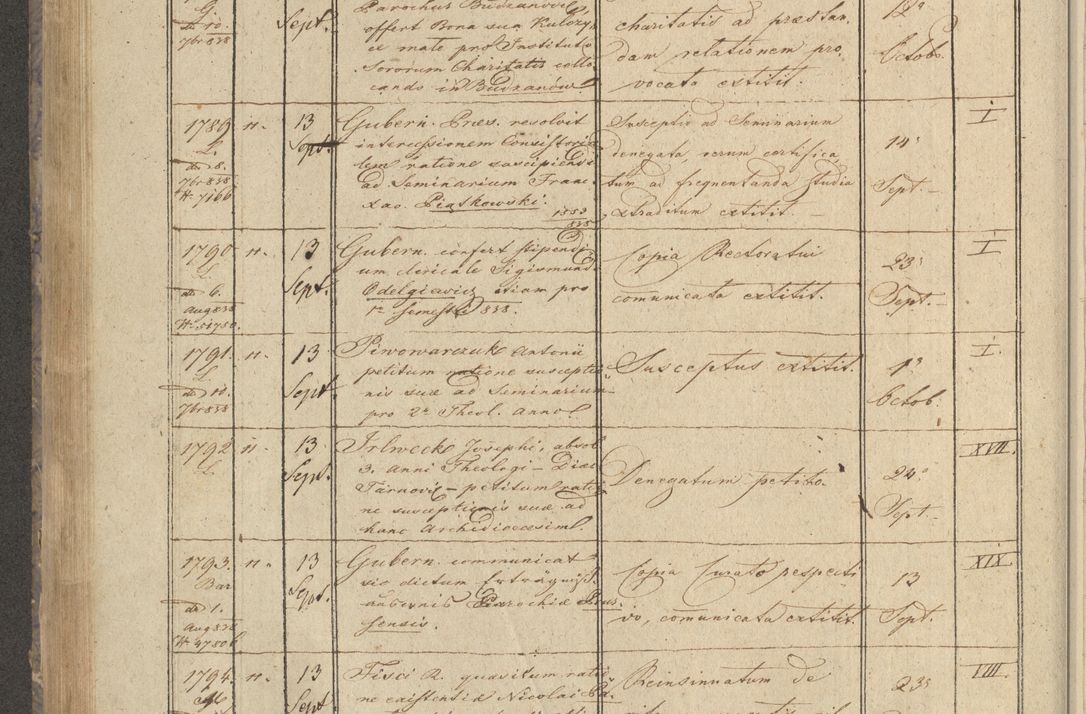 G.
de 10.
7br 838
Sept.
Parochus Budzanovi
offert Bona sua Kulczy
ce male pro Instituto
Sororum Charitatis collo
cando in Budzanów
charitatis ad præstan
dam relationem pro
vocata extitit.
12a
Octob.
1789
L.
de 8.
7br 838
N. 7166
n.
13
Sept.
Gubern. Præs. resolvit
intercessionem Consistoria
lem ratione suscipiensi
ad Seminarium Franc.
Xav. Piątkowski.
1853
838
Susceptio ad Seminarium
denegata, verum certifica
tum ad frequentanda studia
extraditum extitit.
14a
Sept.
I
1790
L.
de 6.
Aug 838
N. 51750.
n.
13
Sept.
Gubern. confert stipendi
um clericale Sigismund.
Odelgiewicz etiam pro
1o semestri 838.
Copia Rectoratui
comunicata extitit.
23a
Sept.
I
1791.
L.
de 10.
7br 838
n.
13
Sept.
Piwowarczuk Antonii
petitum ratione susceptio
nis suæ ad Seminarium
pro 2o Theol. Anno
Susceptus extitit.
1a
Octob.
I.
1792
L.
n.
13
Sept.
Josephi, absol.
3. Anni Theologi – Diæc.
Tarnovi – petitum ratio
ne susceptionis suæ ad
hanc Archidioecesim.
Denegatum petito.
24a
Sept.
XVII.
1793.
Bar
de 1.
Aug 838
N. 47806
n.
13
Sept.
Gubern. communicat
sic dictum
Gubernis Parochiæ
sensis.
Copia Curato respecti
vo, comunicata extitit.
13
Sept.
XIX.
1794.
n.
13
Sept.
Fisci R. quæsitum ratio
ne existentiæ Nicolai
Reinsinuatum de
23a
VIII.